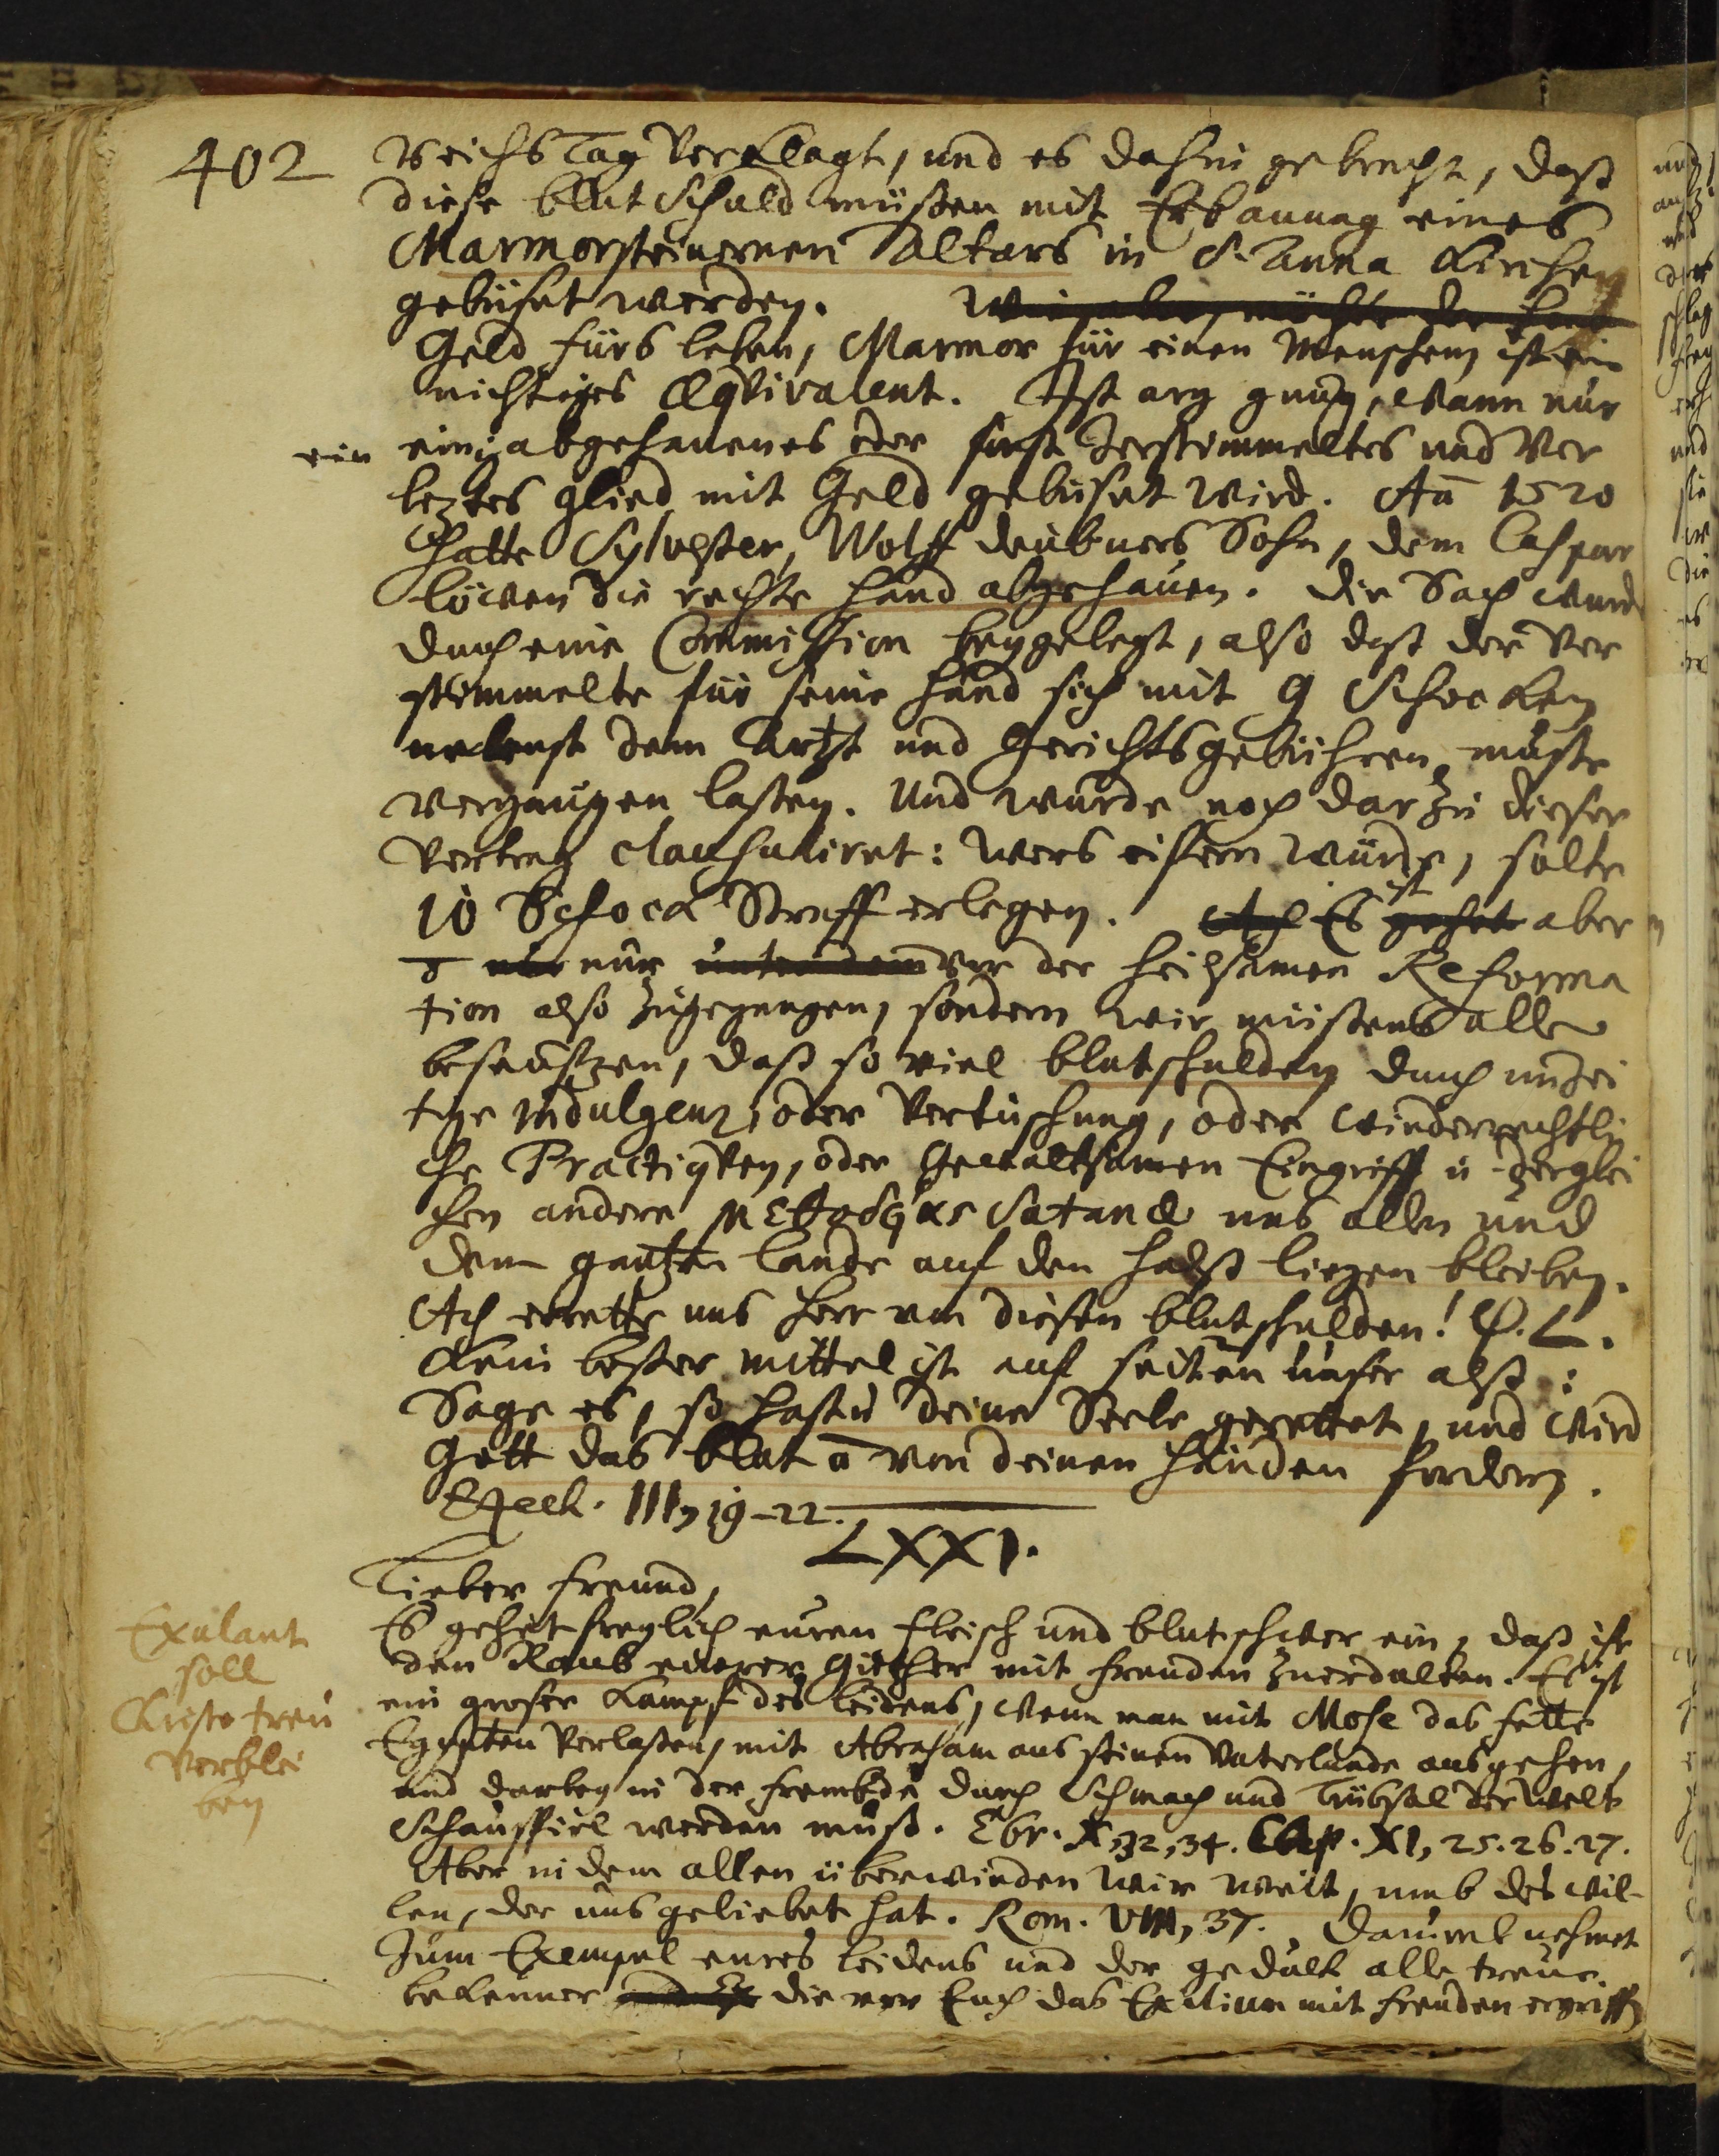 402
Reichs Tag verklagt, und es dahin gebracht, daß
diese blutschuld müßen mit Erbauung eines
Marmorsteinernen Altars in S. Anna Kirchen
gebüset werden. Wir aber, möchte der
Geld fürs leben, Marmor für einen Menschen ist ein
nichtiges Æqvivalent. Ist arg gnug, wann nur
ein abgehauenes oder sonst zerstümmeltes und ver
ein
leztes glied mit Geld gebüset wird. Aō 1520
hatte Sylvester, Wolff deübners Sohn, dem Caspar
löwen die rechte hand abgehauen. Die Sach wurde
durch eine Commission beygelegt, also daß der ver
stümmelte für seine hand sich mit 9 Schocken
nebenst dem Artzt und Gerichtsgebühren muste
vergnügen laßen. Und wurde noch darzu dieser
Vertrag clausuliret: wers eifern würde, solte
10 Schock Straff erlegen. Ach Es gehet aber
ist
nur nur unter dem vor der heilsamen Reforma
tion also zugegangen, sondern wir müßens alle
beseuftzen, daß so viel blutschulden durch unzei
tige Indulgenz, oder Vertuschung, oder wiederrechtli
che Practiqven, oder Gewaltsamen Eingriff u. derglei
chen andere μεθοδείας Satanæ uns allen und
dem gantzen lande auf den halß liegen bleiben.
Ach errette uns Herr von diesen blutschulden! Ps. L.
Kein beßer mittel ist auf seiten unser alß:
Sage es, so hastu deine Seele gerettet, und wird
Gott das blut ō von deinen händen fordern.
Ezech. III, 19-22.
LXXI.
Lieber freund,
Es gehet freylich euren fleisch und blut schwer ein, daß ihr
den Raub eurer Güther mit freuden zuerdulten. Es ist
ein groser Kampf des leidens, wenn man mit Mose das fette
Egypten verlaßen, mit Abraham aus seinen Vaterlande ausgehen,
und darbey in der frembde durch Schmach und Trübsal der Welt
Schauspiel werden muß. Ebr. X, 32, 34. Cap. XI, 25. 26. 27.
Aber in dem allen überwinden wir weit, umb des wil-
len, der uns geliebet hat. Rom. VIII, 37. Darumb nehmet
Zum Exempel eures leidens und der gedult alle treue
bekenner die vor Euch das Exilium mit freuden ergriffen
Exulant
soll
Christo treu
verblei
ben